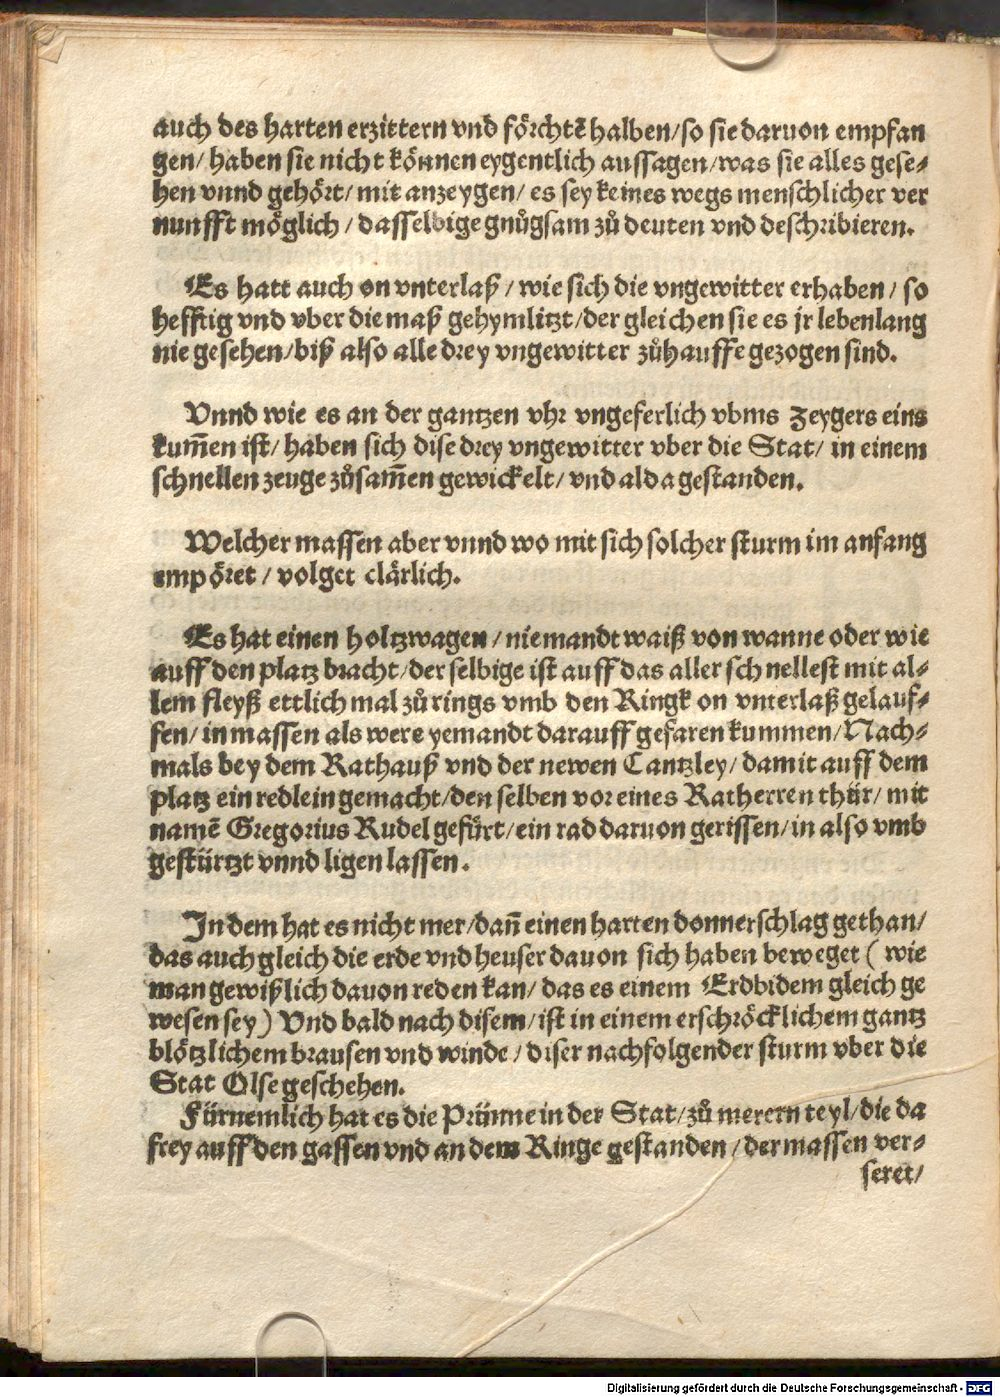 auch des harten erzittern vnd förchtẽ halben/ so sie daruon empfan
gen/ haben sie nicht können eygentlich aussagen/ was sie alles gese-
hen vnnd gehört/ mit anzeygen/ es sey keines wegs menschlicher ver
nunfft möglich / dasselbige gnůgsam zů deuten vnd deschribieren.
Es hatt auch on vnterlaß / wie sich die vngewitter erhaben / so
hefftig vnd vber die maß gehymlitzt/ der gleichen sie es jr lebenlang
nie gesehen/ biß also alle drey vngewitter zůhauffe gezogen sind.
Vnnd wie es an der gantzen vhr vngeferlich vbms zeygers eins
kum̃en ist/ haben sich dise drey vngewitter vber die Stat/ in einem
schnellen zeuge zůsam̃en gewickelt/ vnd alda gestanden.
Welcher massen aber vnnd wo mit sich solcher sturm im anfang
empöret / volget clärlich.
Es hat einen holtzwagen / niemandt waiß von wanne oder wie
auff den platz bracht/ der selbige ist auff das aller schnellest mit al-
lem fleyß ettlich mal zů rings vmb den Ringk on vnterlaß gelauf-
fen/ in massen als were yemandt darauff gefaren kummen/ Nach-
mals bey dem Rathauß vnd der newen Cantzley/ damit auff dem
platz ein redlein gemacht/ den selben vor eines Ratherren thür/ mit
namẽ Gregorius Rudel gefürt/ ein rad daruon gerissen/ in also vmb
gestürtzt vnnd ligen lassen.
In dem hat es nicht mer/ dañ einen harten donnerschlag gethan/
das auch gleich die erde vnd heuser dauon sich haben beweget ( wie
man gewißlich dauon reden kan/ das es einem Erdbidem gleich ge
wesen sey ) Vnd bald nach disem/ ist in einem erschröcklichem gantz
blötzlichem brausen vnd winde / diser nachfolgender sturm vber die
Stat Olse geschehen.
Fürnemlich hat es die Prünne in der Stat/ zů merern teyl/ die da
frey auff den gassen vnd an dem Ringe gestanden / dermassen ver-
seret/
Digitalisierung gefördert durch die Deutsche Forschungsgemeinschaft - DFG